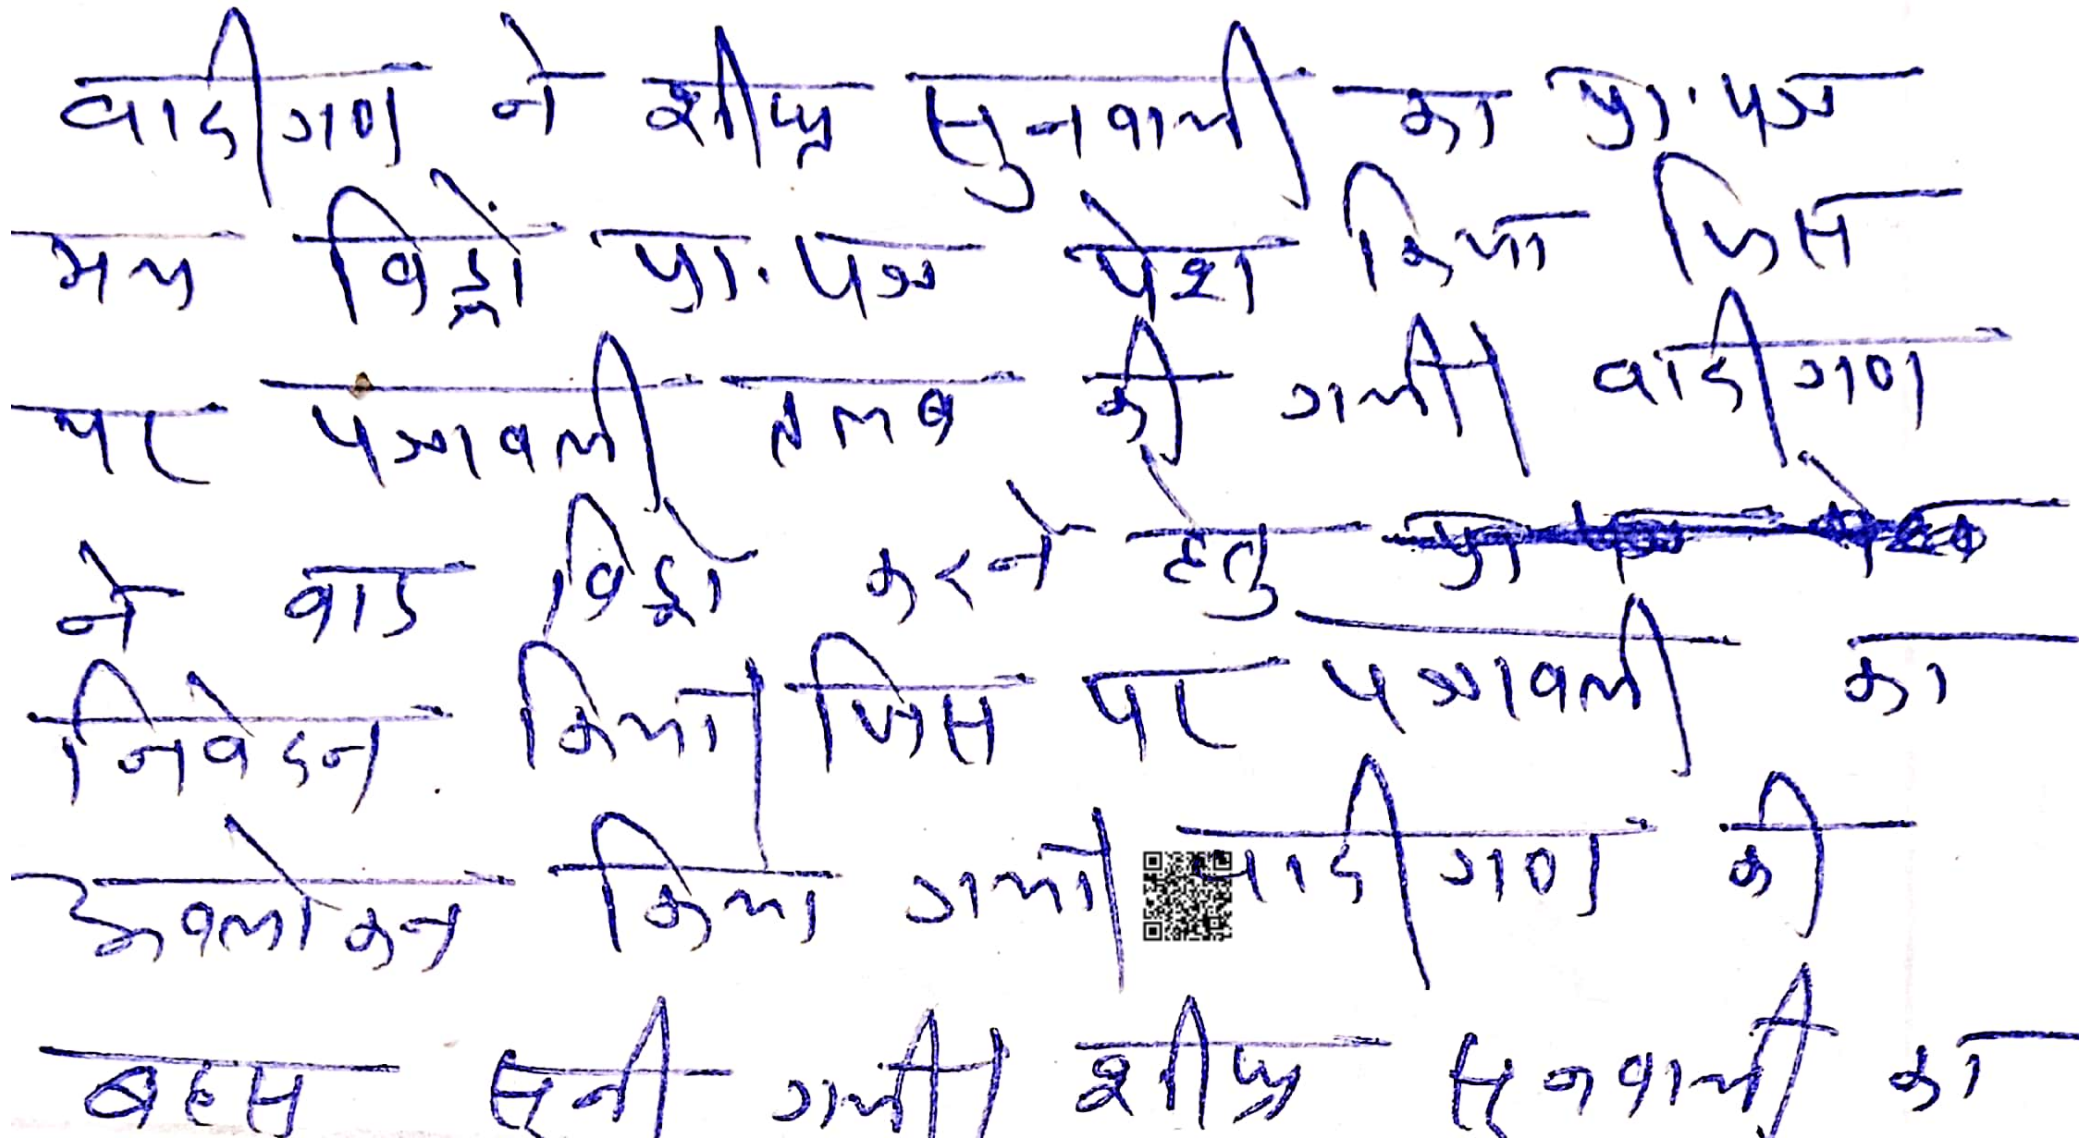 वादीगण ने शीघ्र सुनवायी का प्रा. पत्र
मय विड्रों प्रा. पत्र पेश किया जिस
पर पत्रावली तलब की गयी। वादीगण
ने वाद विड्रो करने हेतु
निवेदन किया। जिस पर पत्रावली का
अवलोकन किया गया। वादीगण की
बहस सुनी गयी। शीघ्र सुनवायी का